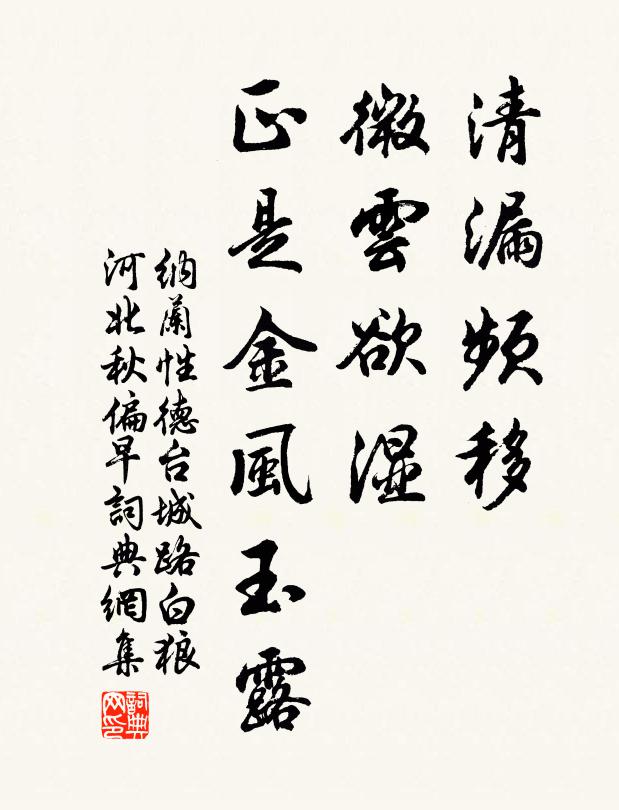 清漏頻移
微雲欲湿
正是金風玉露
納蘭性德台城路白狼
河北秋偏早詞典網集
詞典网印